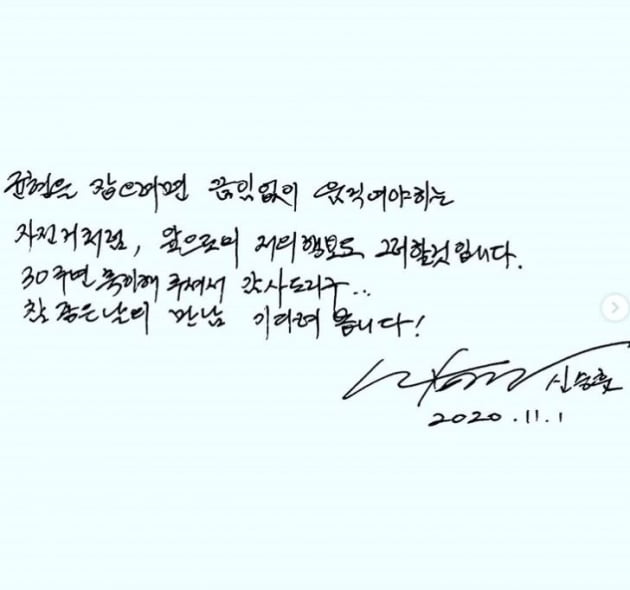 균형을 잡으려면 끊임없이 움직여야하는
자전거처럼, 앞으로의 저의 행보도 그러할것입니다.
30주년 축하해 주셔서 감사드리구..
참 좋은날의 만남 기다려 봅니다!
신승훈
2020.11.1